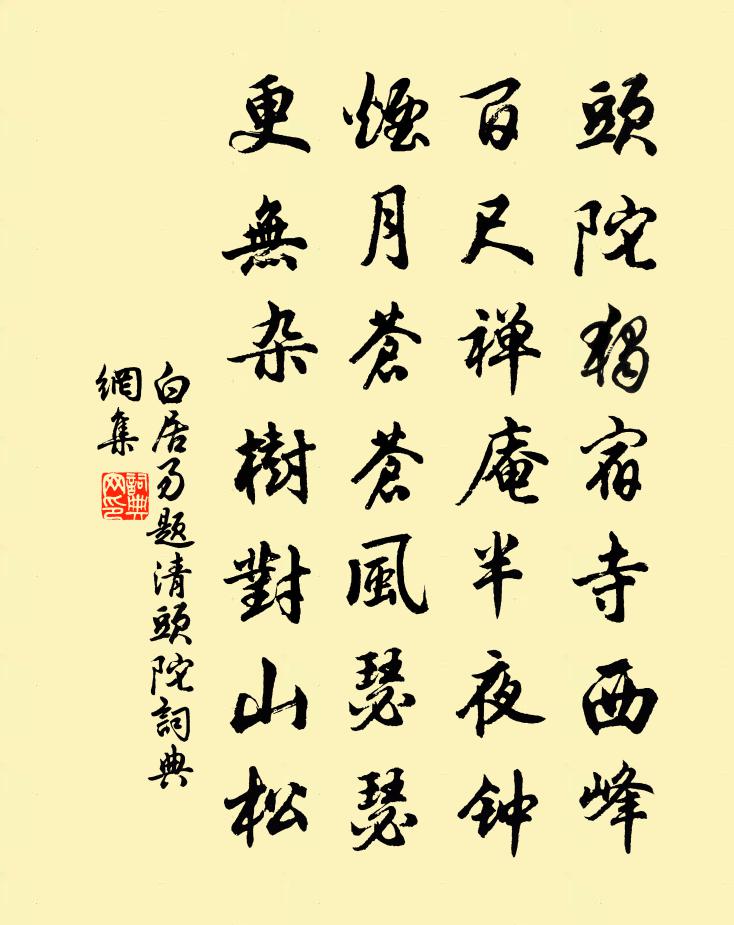 頭陀獨宿寺西峰
百尺禅庵半夜钟
煙月蒼蒼風瑟瑟
更無杂樹對山松
白居易题清頭陀詞典
網集
詞典
网印